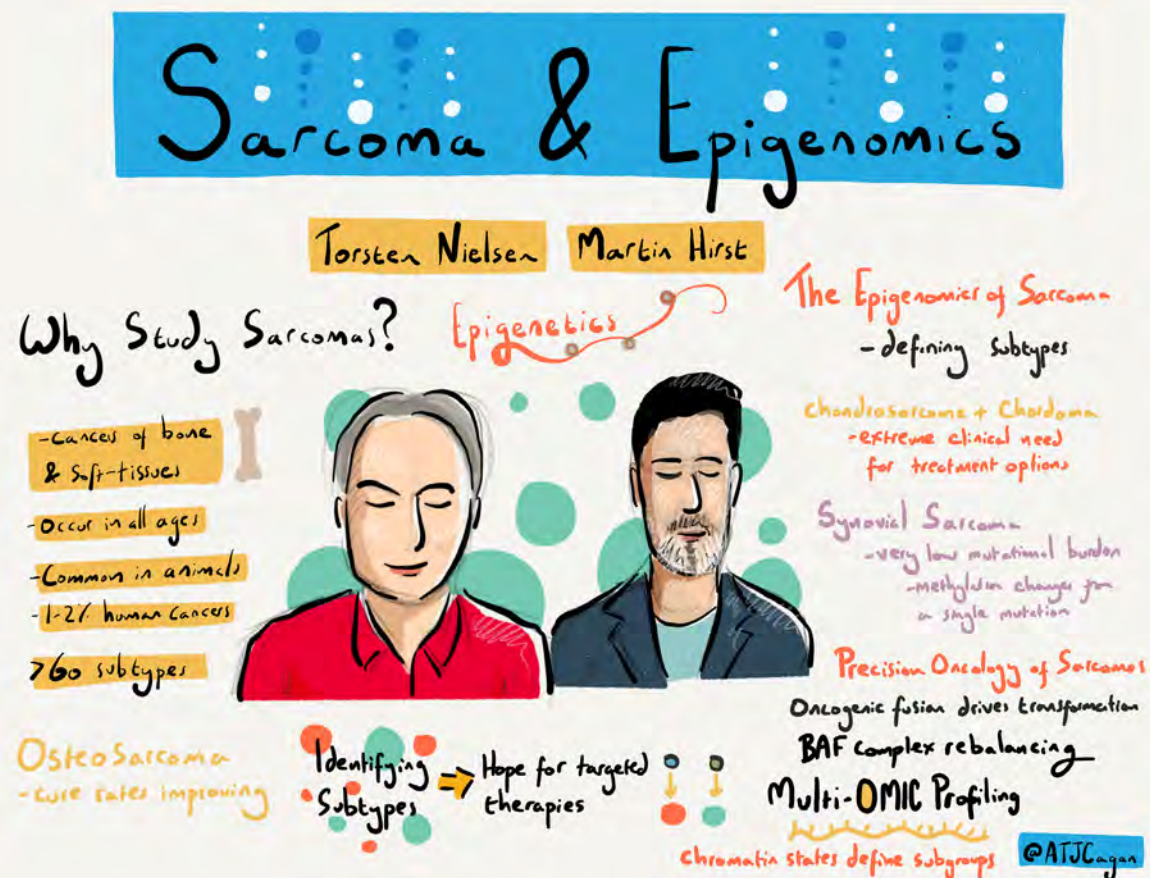 Sarcoma & Epigenomics
Torsten Nielsen
Martin Hirst
Why Study Sarcomas?
-Cancers of bone
& Soft-tissues
-Occur in all ages
-Common in animals
-1-2% human cancers
>60 subtypes
Osteosarcoma
-cure rates improving
Epigenetics
Identifying
Subtypes
Hope for targeted
therapies
The Epigenomics of Sarcoma
-defining subtypes
Chondrosarcoma + Chordoma
-extreme clinical need
for treatment options
Synovial Sarcoma
-very low mutational burdon
-methylation changes for
a single mutation
Precision Oncology of Sarcomas
Oncogenic fusion drives transformation
BAF complex rebalancing
Multi-OMIC Profiling
Chromatin states define subgroups
@ATJCagan